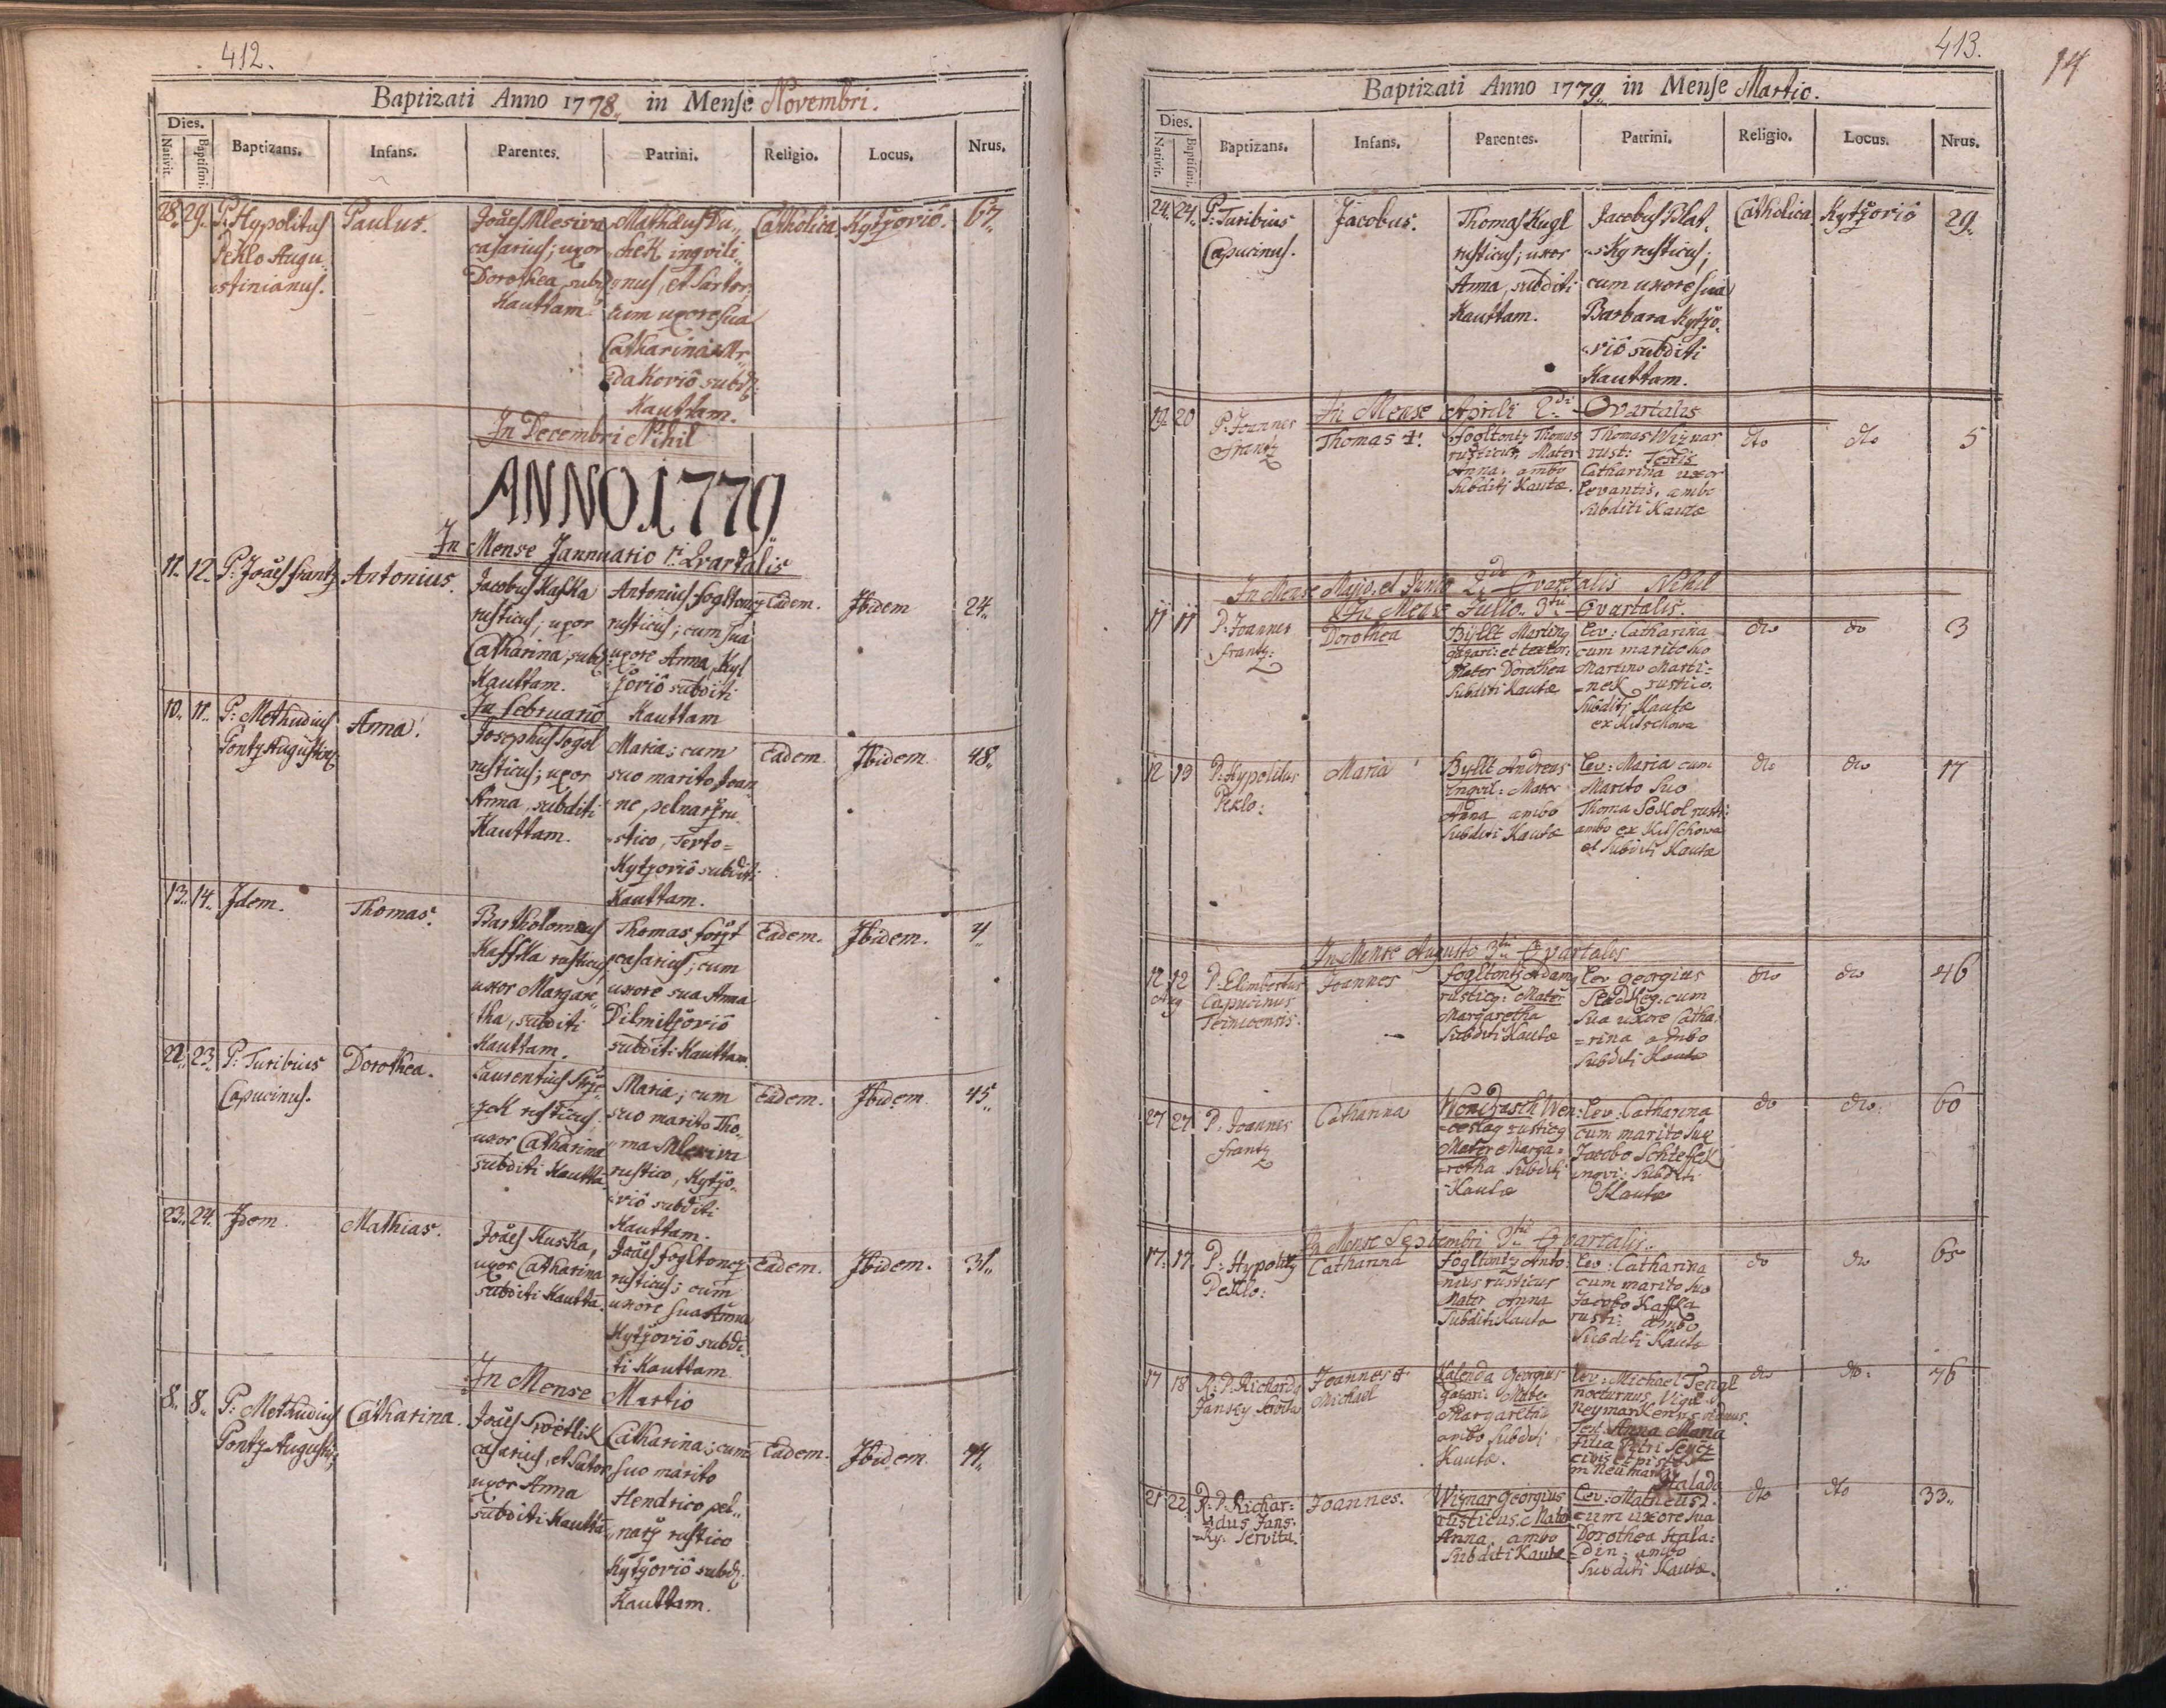 412.
Baptizati Anno 1778. in Mense Novembri.
Dies.
Nativit.
Baptismi.
Baptizans.
Infans.
Parentes.
Patrini.
Religio.
Locus.
Nrus.
28. 29. P: Hypolitus
Peklo Augu,,
stinianus.
Paulus.
Joães Mlesiva
casarius; uxor
Dorothea, subd:
Kauttam
Mathæus Du,,
chek inqvili,,
nus, et Sartor,
cum uxore sua
Catharina Mr,,
dakoviô subd:
Kauttam.
Catholica.
Kytzoviô.
67.
In Decembri Nihil
ANNO 1779
In Mense Jannuario 1i Qvartalis
11. 12. P: Joães frantz
Antonius.
Jacobus Kafka
rusticus; uxor
Catharina, subd:
Kauttam.
Antonius fogltontz
rusticus; cum sua
uxore Anna, Kyt
zoviô subditi
Kauttam
Eadem.
Ibidem
24.
In februario
10. 11. P: Methudius
Pontz Augustin:
Anna.
Josephus Togol
rusticus; uxor
Anna, subditi
Kauttam.
Maria; cum
suo marito Joan
ne, pelnarz ru
stico,
Kytzoviô subditi
Kauttam.
Eadem.
Ibidem.
48.
13. 14. Idem.
Thomas.
Bartholomæus
Kaffka rusticus
uxor Margare
tha, subditi
Kauttam.
Thomas forst
casarius; cum
uxore sua Anna
Dilmitzoviô
subditi Kauttam
Eadem.
Ibidem.
4
22. 23. P: Turibius
Capucinus.
Dorothea.
Laurentius
rusticus;
uxor Catharina
subditi Kautta
Maria; cum
suo marito Tho,,
ma Mlesiva
rustico, Kytzo,
viô subditi
Kauttam.
Eadem.
Ibidem.
45.
23. 24. Idem.
Mathias.
Joães Kuska,
uxor Catharina
subditi Kautta.
Joães fogltoncz
rusticus; cum
uxore sua Anna
Kytzoviô subdi
ti Kauttam
Eadem.
Ibidem.
31.
In Mense Martio
8. 8. P: Methudius
Pontz Augustin;
Catharina.
Joães Swetlik
casarius, et Sutor
uxor Anna
subditi Kautta
Catharina; cum
suo marito
Hendrico pel,,
narz rustico
Kytzoviô subd:
Kauttam.
Eadem.
Ibidem.
413.
14
Baptizati Anno 1779. in Mense Martio.
Dies.
Nativit.
Baptismi.
Baptizans.
Infans.
Parentes.
Patrini.
Religio.
Locus.
Nrus.
24. 24. P: Turibius
Capucinus.
Jacobus.
Thomas Kugl
rusticus; uxor
Anna, subditi
Kauttam.
Jacobus Blat,
sky rusticus;
cum uxore sua
Barbara Kytzo,
viô subditi
Kauttam.
Catholica
Kytzoviô
29.
In Mense Aprili 2di Qvartalis
19 20 P: Joannes
frantz
Thomas +.
fogltontz Thomas
rusticus, Mater
Anna. ambo
Subditj Kautæ.
Thomas Wiznar
rust: Testis
Catharina uxor
levantis, ambo
Subditi Kautæ
dto
dto
5
In Mense Majo, et Junio 2di Qvartalis Nihil
In Mense Julio. 3tii Qvartalis.
11 11 P: Joannes
frantz:
Dorothea
Martinq
gazari: et textor:
Mater Dorothea
Subditi Kautæ
Lev: Catharina
cum marito suo
Martino Marti=
=nek rustico.
Subditj Kautæ
ex Kitschowa
dto
do
3
12 13 P: Hypolitus
Peklo:
Maria
Andreas
Inqvil: Mater
Anna ambo
Subditi Kautæ
Lev: Maria cum
Marito Suo
Thoma Sokol rusti:
ambo ex Kitschowa
et Subditi Kautæ
dto
dto
17
In Mense Augusto 3tii Qvartalis
12 12
Aug
P: Elimbertus
Capucinus
Joannes
fogltontz Adamq
rusticq: Mater
Margaretha
Subditi Kautæ
Lev Georgius
cum
Sua uxore Catha:
=rina ambo
Subditi Kautæ
dto
dto
46
27 27 P: Joannes
frantz
Catharina
Wen:
=ceslaq rusticq
Mater Marga=
=retha Subditj
Kautæ
Lev: Catharina
cum marito suo
Jacobo Schieffek
inqvi: Subditi
Kautæ
do
dto
60
In Mense Septembri 3tii Qvartalis.
17. 17. P: Hypolitq
Peklo:
Catharina
fogltontz Anto:
nius rusticus
Mater Anna
Subditi Kautæ
Lev: Catharina
cum marito suo
Jacobo Kaffka
rusti: ambo
Subditj Kautæ
do
dto
65
17 18 R: P: Richardq
Jansky Servita
Joannes et
Michael
Kalenda Georgius
gazari: Mater
Margaretha
ambo Subditi
Kautæ.
Lev: Michael
nocturnus Vigil
Neymarkensis
Test: Anna Maria
filia Petri
civis et
in Neumark
dto
do:
76
21 22 R: P: Richar=
dus Jans=
=ky. Servita.
Joannes.
Wiznar Georgius
rusticus. Mater
Anna ambo
Subditi Kautæ
Halada
Lev: Matheus
cum uxore sua
Dorothea Hala=
=din: ambo
Subditi Kautæ.
dto
dto
33.